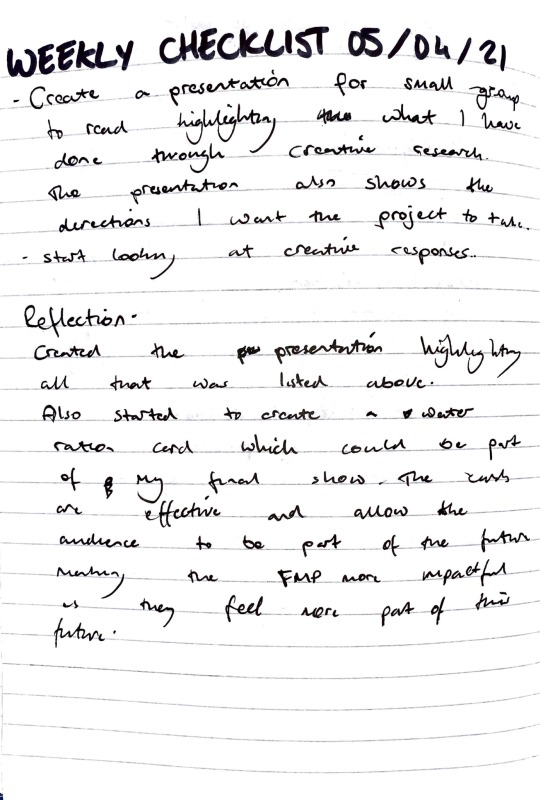 WEEKLY CHECKLIST 05/04/21
- Create a presentation for small group
to read highlighting what I have
done through creative research.
The presentation also shows the
directions I want the project to take.
- start looking at creative responses..
Reflection -
Created the presentation highlighting
all that was listed above.
Also started to create a water
ration card which could be part
of my final show. The cards
are effective and allow the
audience to be part of the future
making the FMP more impactful
as they feel more part of this
future.